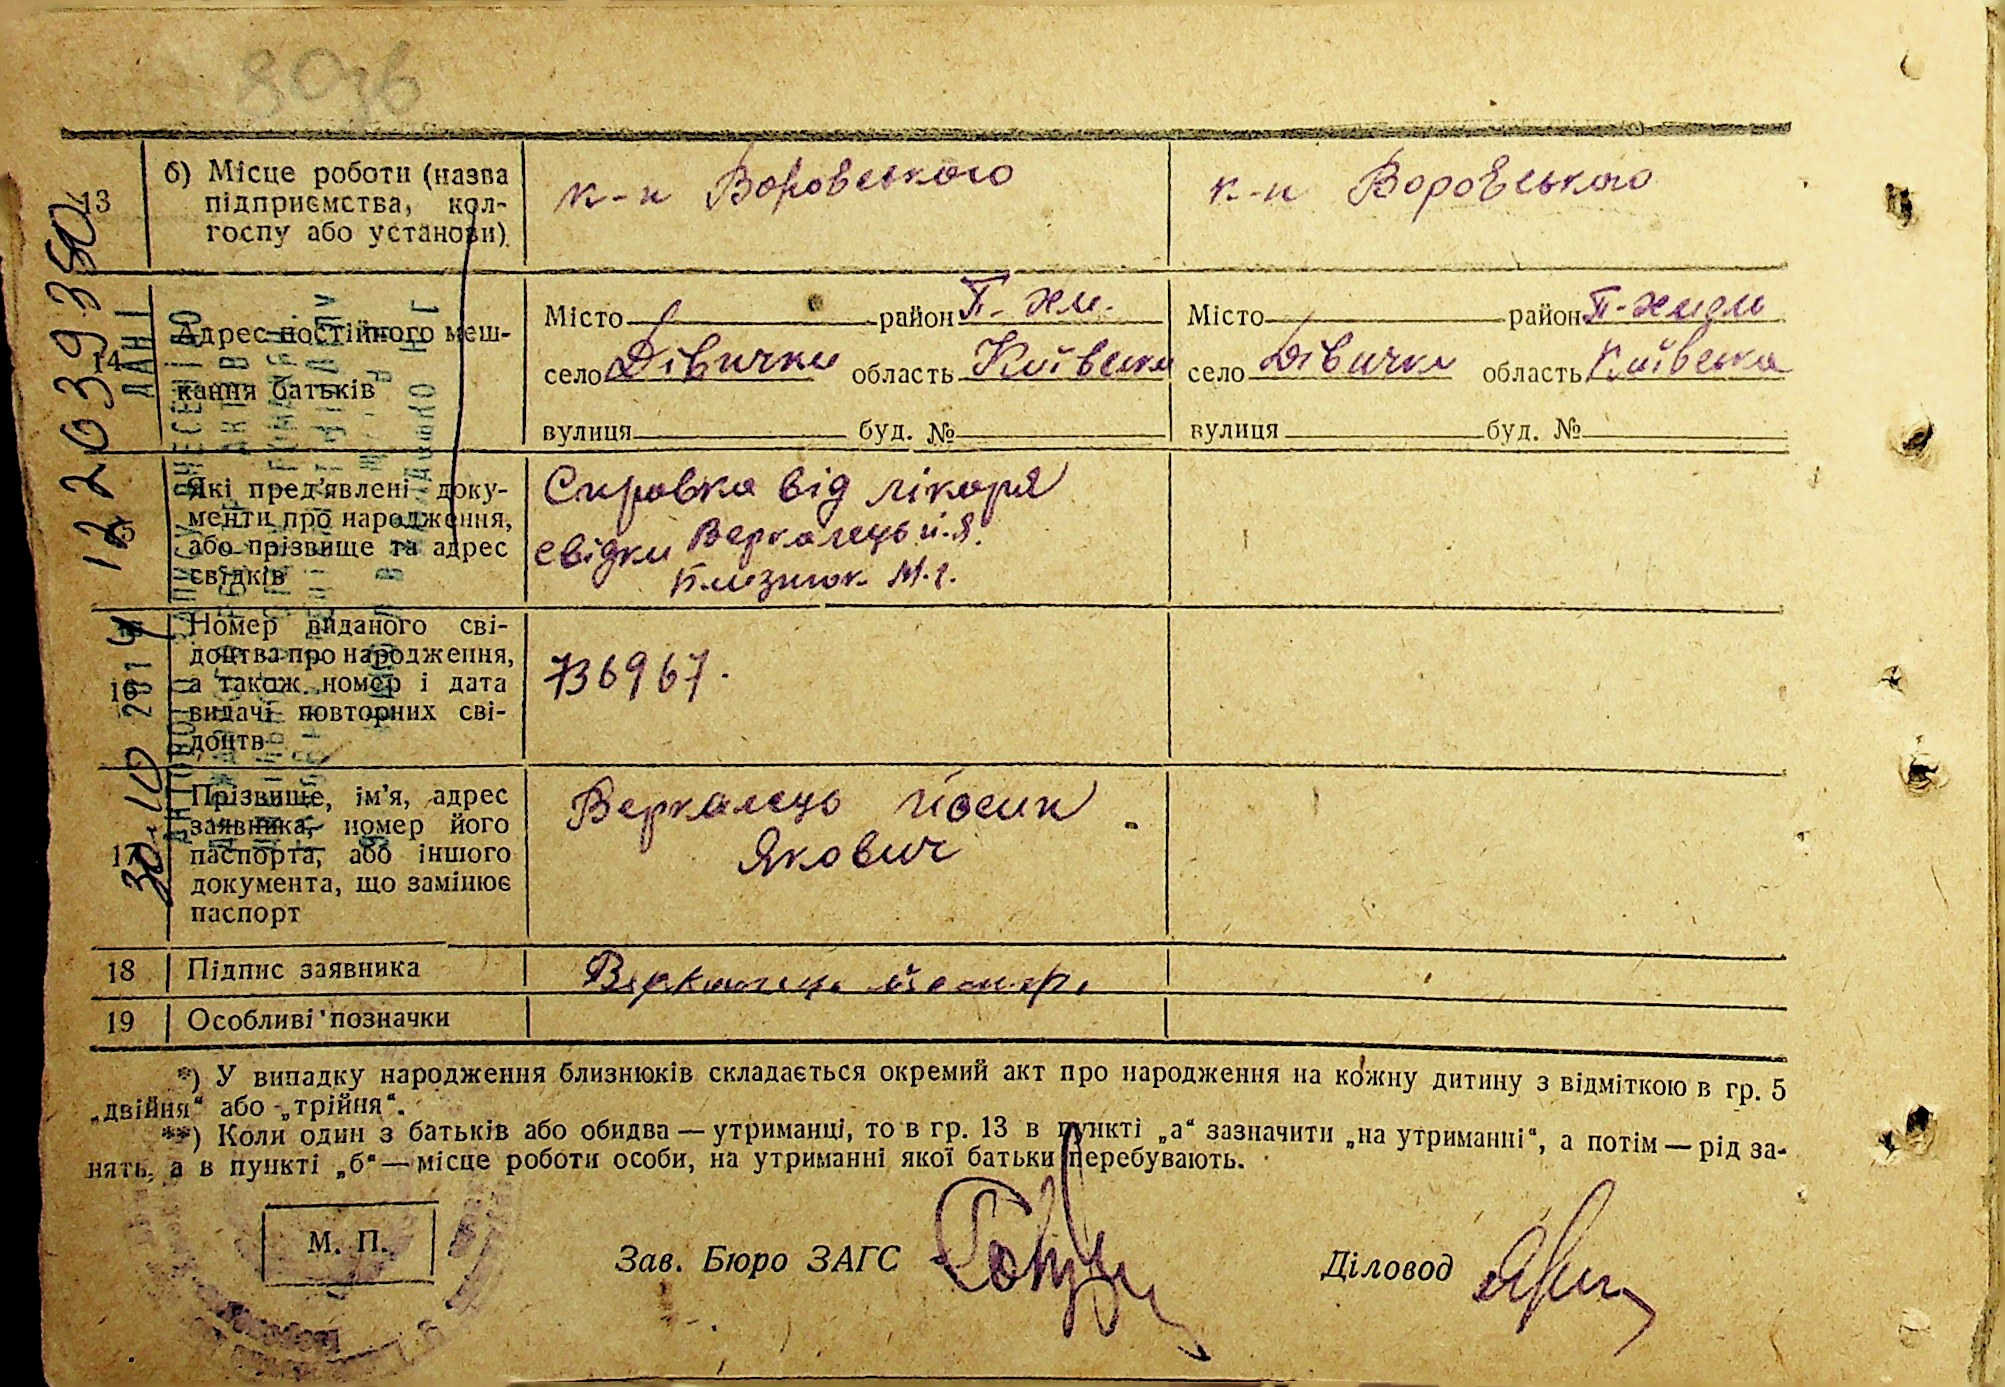 13
б) Місце роботи (назва
підприємства, кол-
госпу або установи)
к-п Воровського
к-п Воровського
14
Адрес постійного меш-
кання батьків
Місто район П-Хм. Місто район П-Хмел
село Дівички область Київська село Дівички область Київська
вулиця буд. № вулиця буд. №
15
Які пред'явлені доку-
менти про народження,
або прізвище та адрес
свідків
Справка від лікаря
свідки Веркалець Й.Я.
М.г.
16
Номер виданого сві-
доцтва про народження,
а також номер і дата
видачі повторних сві-
доцтв
736967.
17
Прізвище, ім'я, адрес
заявника, номер його
паспорта, або іншого
документа, що замінює
паспорт
Веркалець Йосип
Якович
18 Підпис заявника Веркалець
19 Особливі позначки
*) У випадку народження близнюків складається окремий акт про народження на кожну дитину з відміткою в гр. 5
„двійня“ або „трійня“.
**) Коли один з батьків або обидва — утриманці, то в гр. 13 в пункті „а“ зазначити „на утриманні“, а потім — рід за-
нять, а в пункті „б“ — місце роботи особи, на утриманні якої батьки перебувають.
М. П.
Зав. Бюро ЗАГС
Діловод